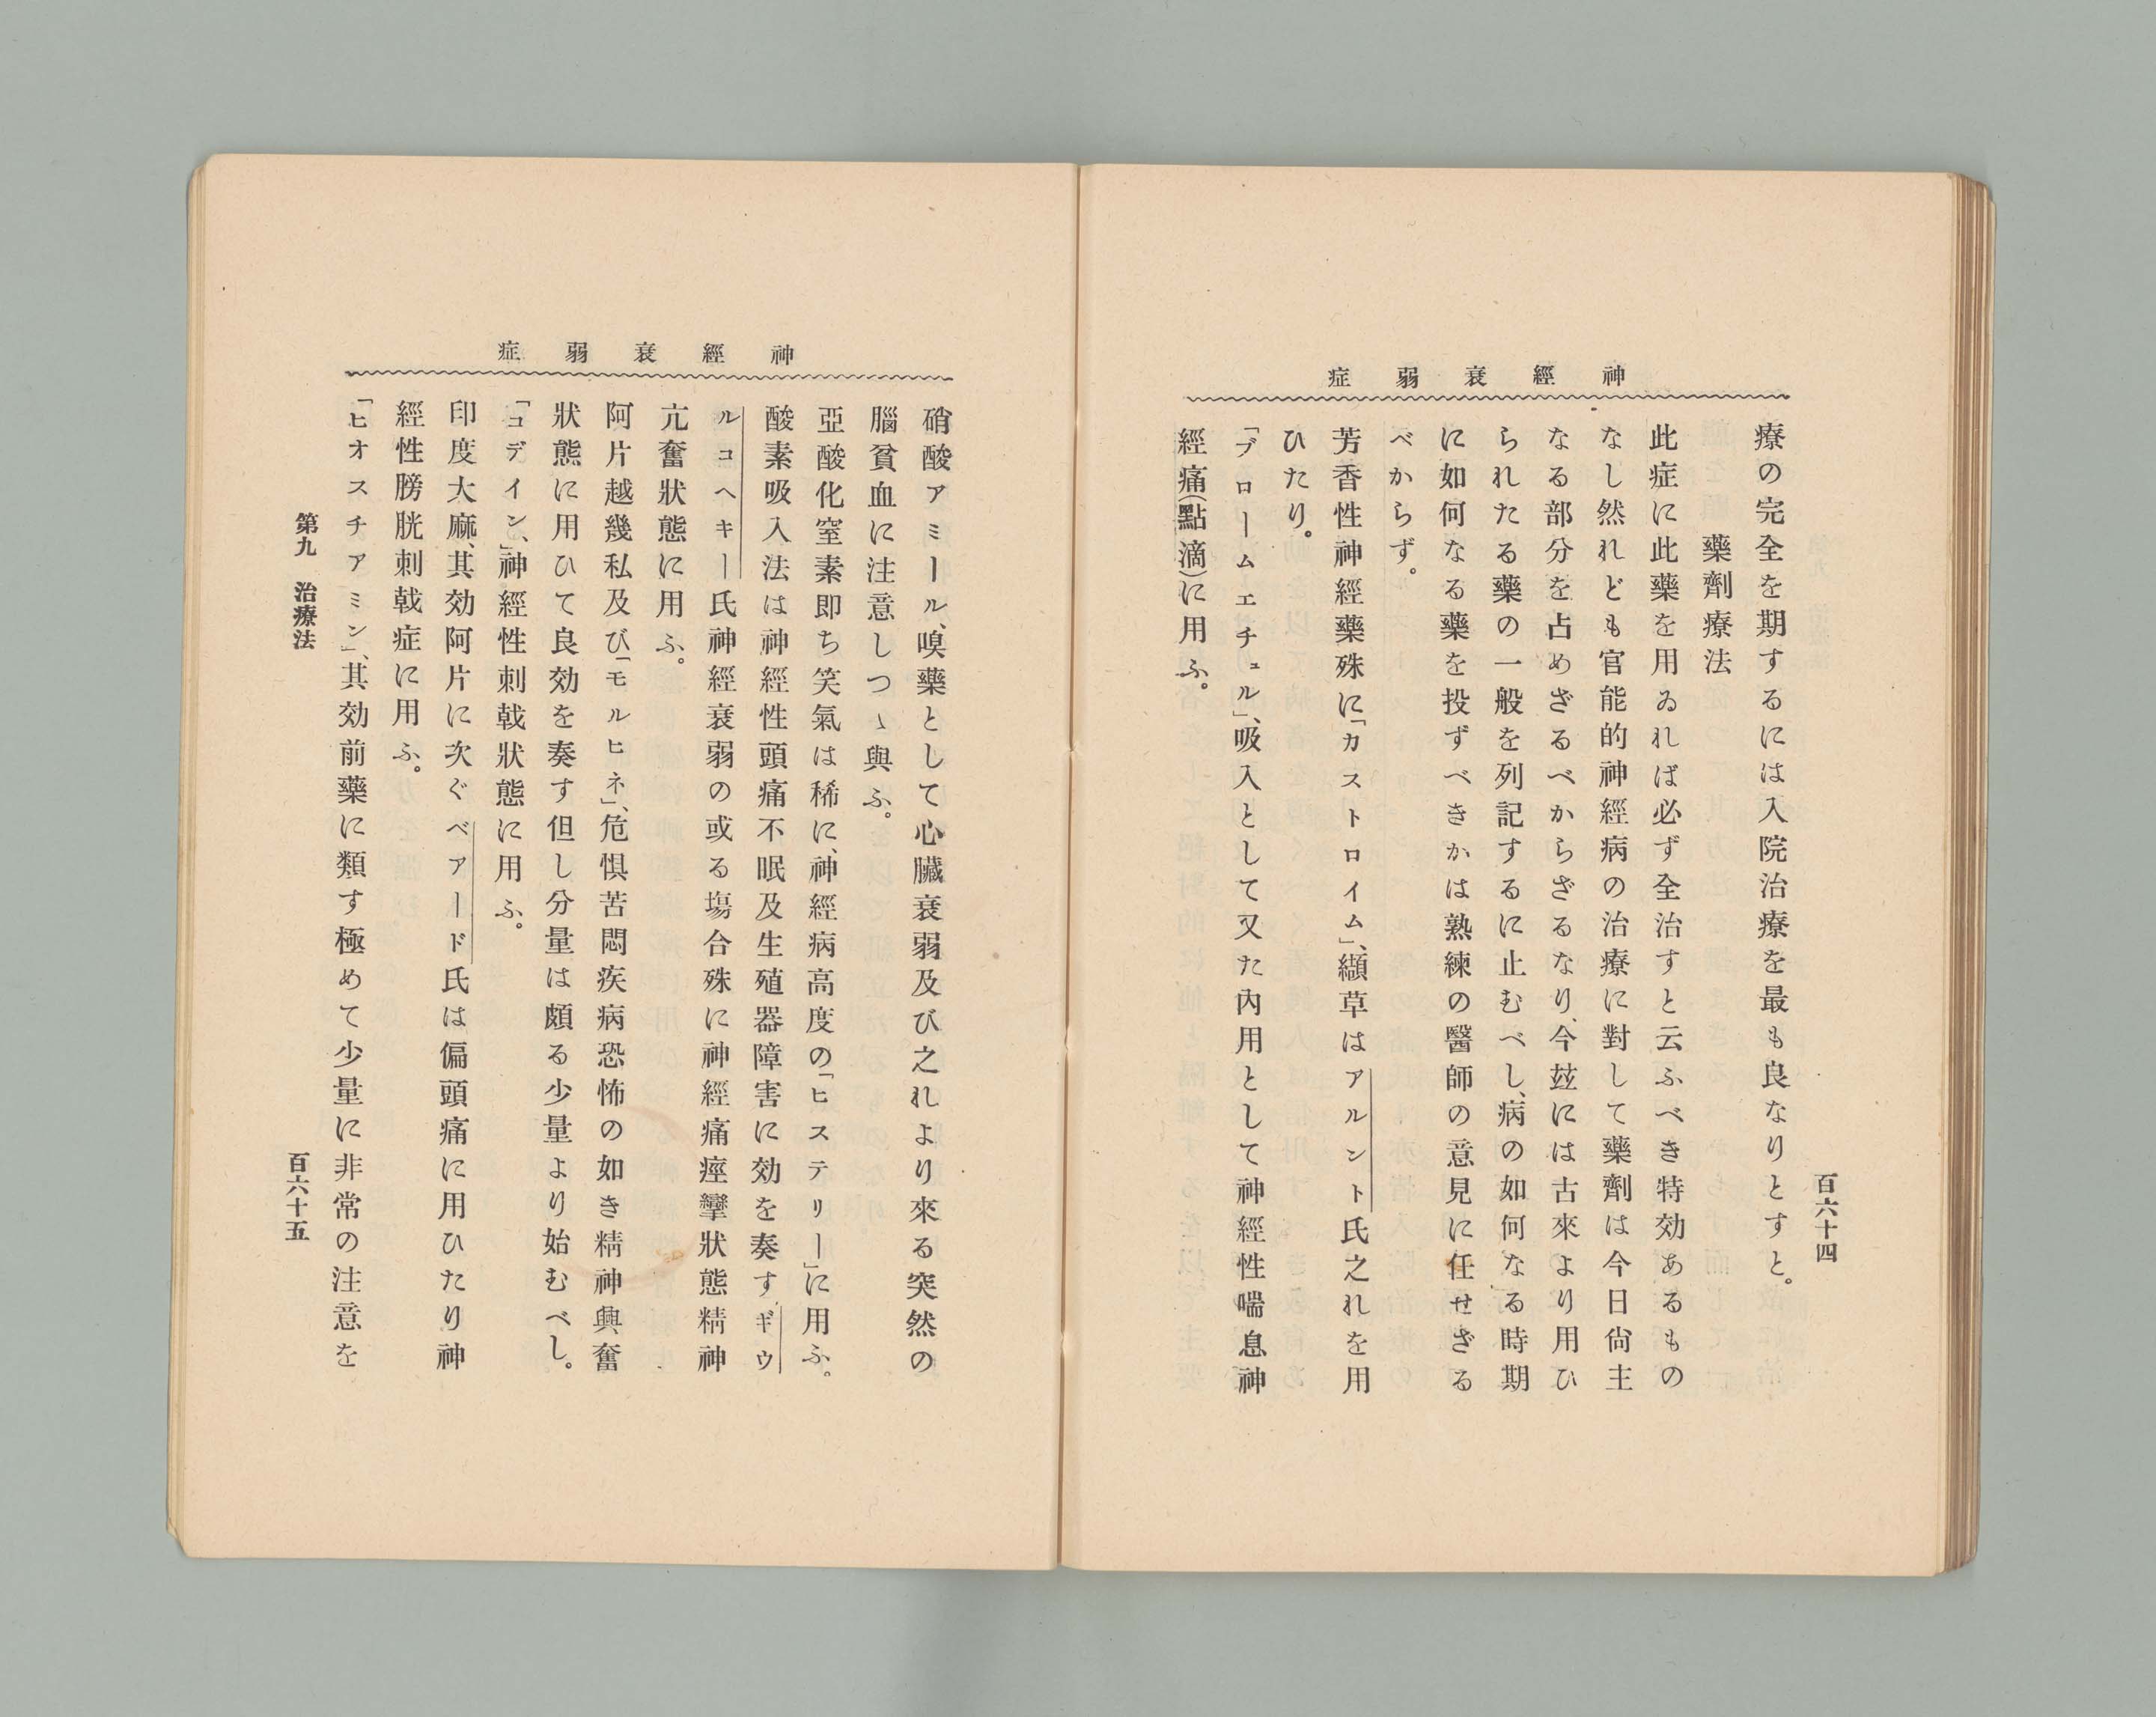 神經衰弱症
百六十四
療の完全を期するには入院治療を最も良なりとすと。
藥劑療法
此症に此藥を用ゐれば必ず全治すと云ふべき特効あるもの
なし然れども官能的神經病の治療に對して藥劑は今日尙主
なる部分を占めざるべからざるなり、今玆には古來より用ひ
られたる藥の一般を列記するに止むべし、病の如何なる時期
に如何なる藥を投ずべきかは熟練の醫師の意見に任せざる
べからず。
芳香性神經藥殊に「カストロイム」、纈草はアルント氏之れを用
ひたり。
「ブロームエチュル」、吸入として又た內用として神經性喘息神
經痛(點滴)に用ふ。
神經衰弱症
硝酸アミール、嗅藥として心臟衰弱及び之れより來る突然の
腦貧血に注意しつゝ與ふ。
亞酸化窒素即ち笑氣は稀に、神經病高度の「ヒステリー」に用ふ。
酸素吸入法は神經性頭痛不眠及生殖器障害に効を奏すギウ
ルコヘキー氏神經衰弱の或る塲合殊に神經痛痙攣狀態精神
亢奮狀態に用ふ。
阿片越幾私及び「モルヒネ」、危惧苦悶疾病恐怖の如き精神興奮
狀態に用ひて良効を奏す但し分量は頗る少量より始むべし。
「コデイン」、神經性刺戟狀態に用ふ。
印度大麻、其効阿片に次ぐベアード氏は偏頭痛に用ひたり神
經性膀胱刺戟症に用ふ。
「ヒオスチアミン」、其効前藥に類す極めて少量に非常の注意を
第九　治療法
百六十五